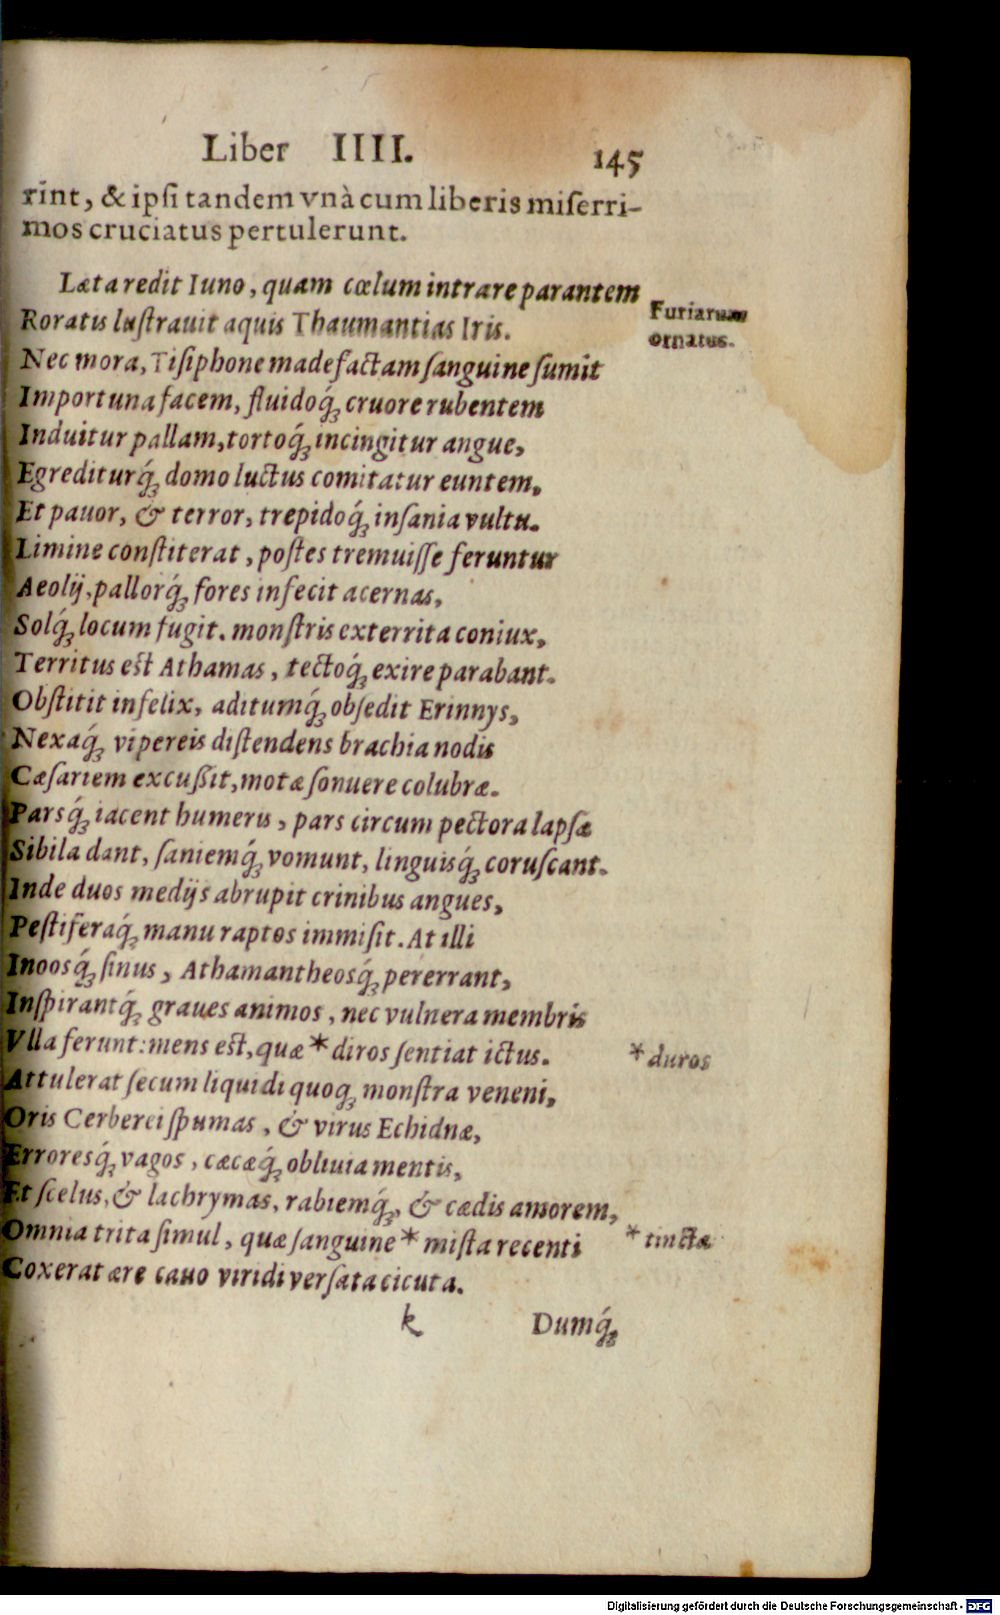 Liber IIII. 145
rint, & ipsi tandem vnà cum liberis miserri-
mos cruciatus pertulerunt.
Læta redit Iuno, quam cœlum intrare parantem
Furiarum
Roratis lustrauit aquis Thaumantias Iris.
ornatus.
Nec mora, Tisiphone madefactam sanguine sumit
Importuna facem, fluidoq́ꝫ cruore rubentem
Induitur pallam, tortoq́ꝫ incingitur angue,
Egrediturq́ꝫ domo luctus comitatur euntem,
Et pauor, & terror, trepidoq́ꝫ insania vultu.
Limine constiterat, postes tremuisse feruntur
Aeolij, pallorq́ꝫ fores infecit acernas,
Solq́ꝫ locum fugit. monstris exterrita coniux,
Territus est Athamas, tectoq́ꝫ exire parabant.
Obstitit infelix, aditumq́ꝫ obsedit Erinnys,
Nexaq́ꝫ vipereis distendens brachia nodis
Cæsariem excußit, motæ sonuere colubræ.
Parsq́ꝫ iacent humeris, pars circum pectora lapsæ
Sibila dant, saniemq́ꝫ vomunt, linguisq́ꝫ coruscant.
Inde duos medijs abrupit crinibus angues,
Pestiferaq́ꝫ manu raptos immisit. At illi
Inoosq́ꝫ sinus, Athamantheosq́ꝫ pererrant,
Inspirantq́ꝫ graues animos, nec vulnera membris
Vlla ferunt: mens est, quæ * diros sentiat ictus.
* duros
Attulerat secum liquidi quoqꝫ monstra veneni,
Oris Cerberei spumas, & virus Echidnæ,
Erroresq́ꝫ vagos, cæcæq́ꝫ obliuia mentis,
Et scelus, & lachrymas, rabiemq́ꝫ, & cædis amorem,
Omnia trita simul, quæ sanguine * mista recenti
* tinctæ
Coxerat ære cauo viridi versata cicuta.
k Dumq́ꝫ
Digitalisierung gefördert durch die Deutsche Forschungsgemeinschaft - DFG